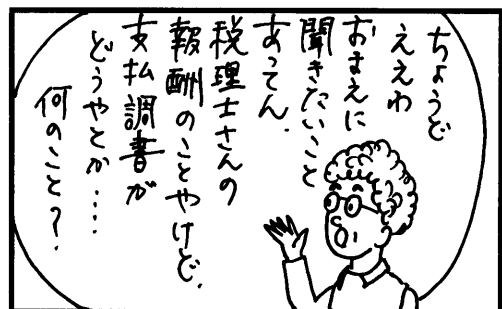 ちょうど
ええわ
おまえに
聞きたいこと
あってん.
税理士さんの
報酬のことやけど.
支払調書が
どうやとか‥‥
何のこと?